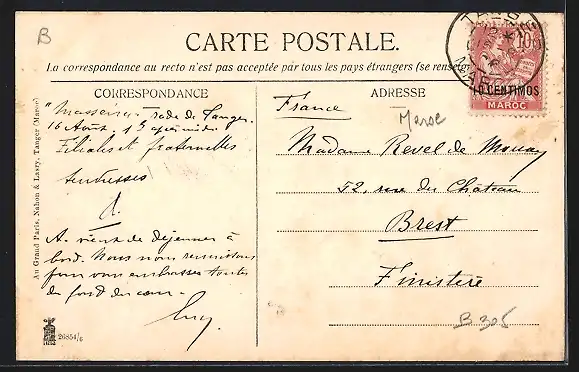 B
CARTE POSTALE.
La correspondance au recto n'est pas acceptée par tous les pays étrangers (se renseig
CORRESPONDANCE
ADRESSE
TANGER
MAROC
10
10 CENTIMOS
MAROC
"Masséna" rade de Tanger
16 Août, 1h après midi
Filiales et fraternelles
tendresses
A.
A. vient de déjeuner à
bord. Nous nous réunissons
pour vous embrasser toutes
du fond du cœur.
Lucy.
France
Maroc
Madame Revel de
52, rue du Château
Brest
Finistère
B 305
Au Grand Paris, Nahon & Lasry, Tanger (Maroc)
26854/6